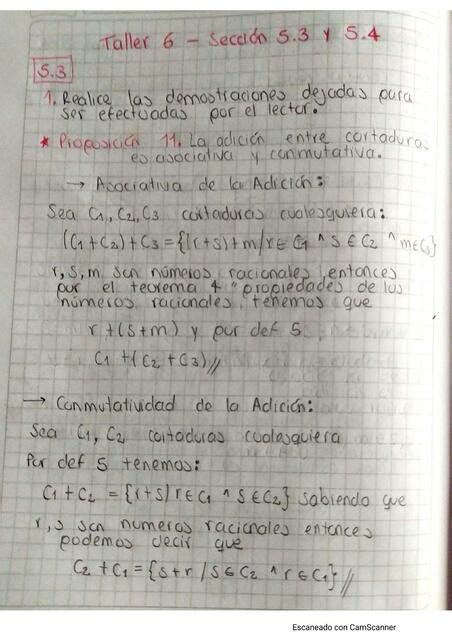 Taller 6 - Sección 5.3 y 5.4
5.3
1. Realice las demostraciones dejadas para
ser efectuadas por el lector.
* Proposición 11. La adición entre cortaduras
es asociativa y conmutativa.
→ Asociativa de la Adición:
Sea C₁, C₂, C₃ cortaduras cualesquiera:
(C₁+C₂)+C₃ = {(r+s)+m/r∈C₁ ^ s∈C₂ ^ m∈C₃}
r, s, m son números racionales, entonces
por el teorema 4 "propiedades de los
números racionales, tenemos que
r+(s+m) y por def 5
C₁+(C₂+C₃)//
→ Conmutatividad de la Adición:
Sea C₁, C₂ cortaduras cualesquiera
Por def 5 tenemos:
C₁+C₂ = {r+s/r∈C₁ ^ s∈C₂} sabiendo que
r, s son numeros racionales entonces
podemos decir que
C₂+C₁ = {s+r/s∈C₂ ^ r∈C₁}//
Escaneado con CamScanner